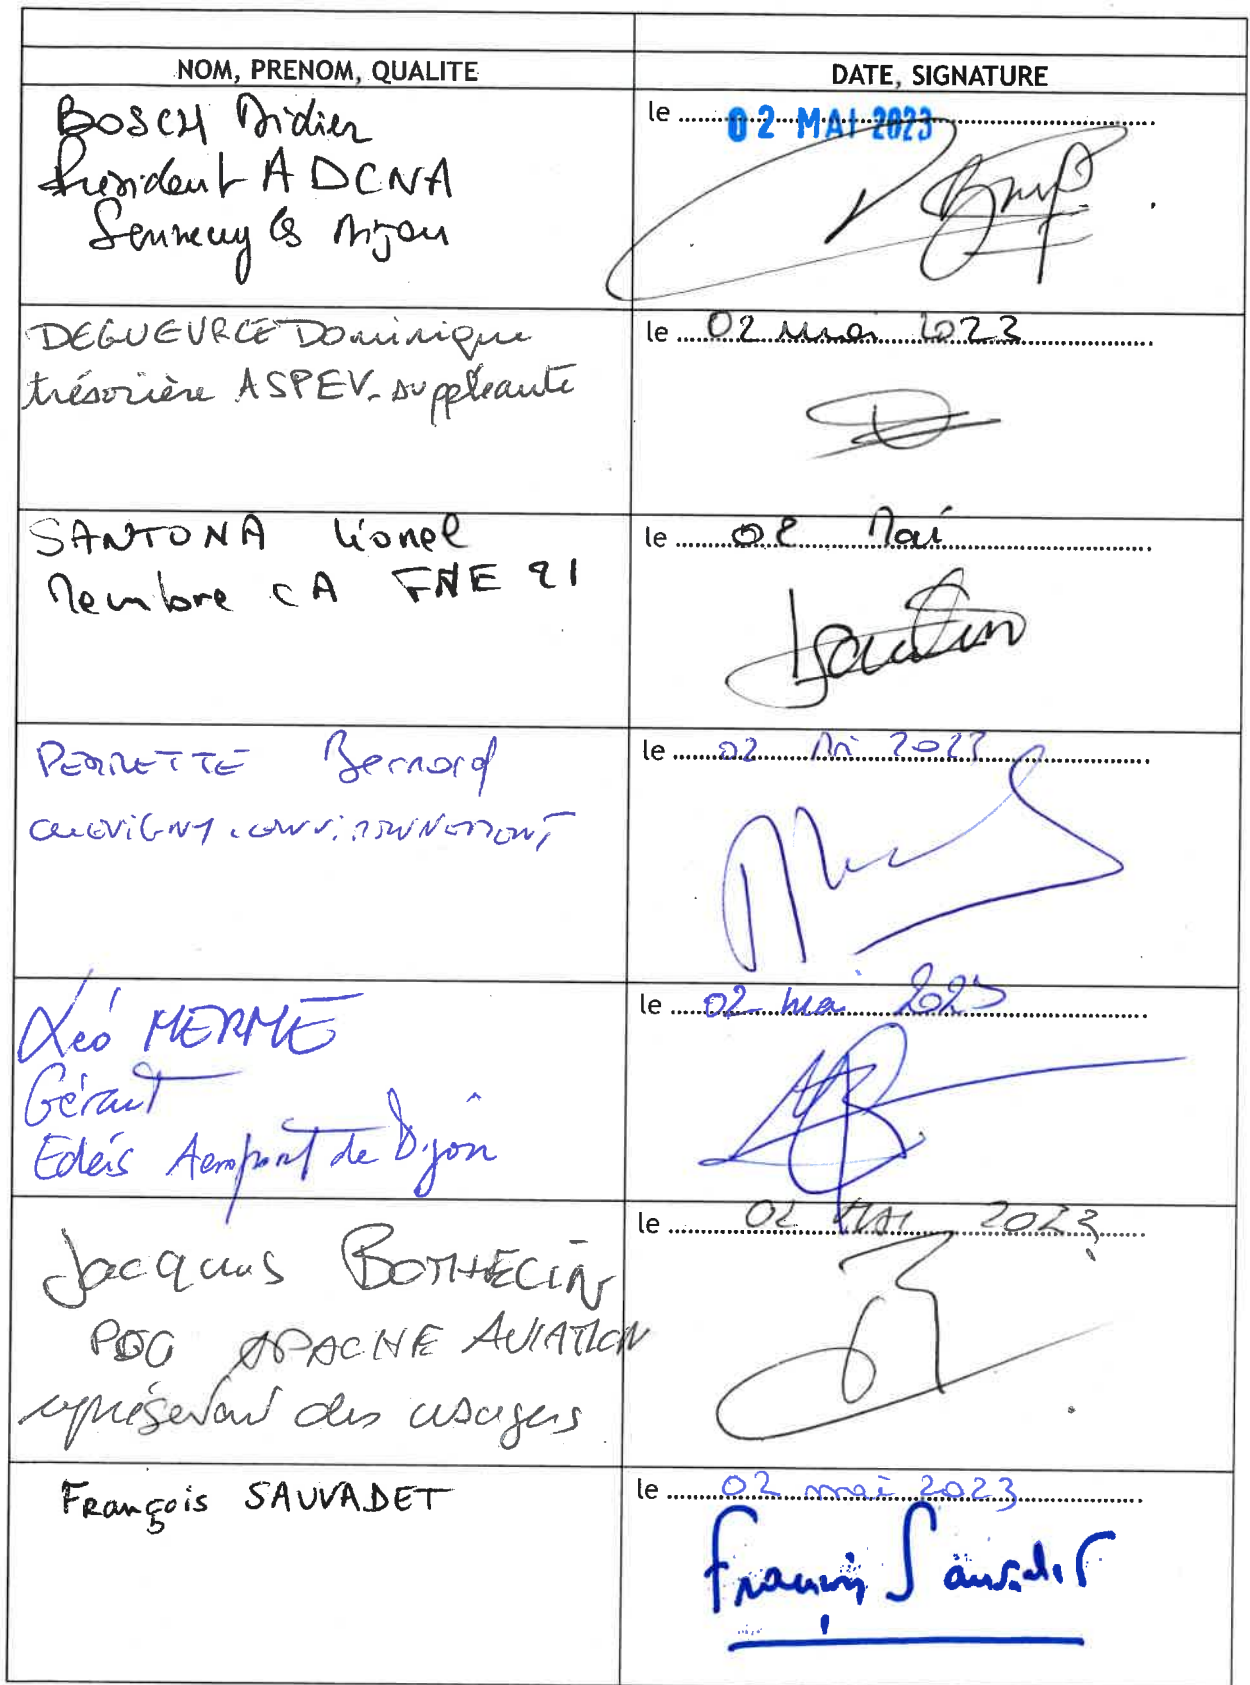 NOM, PRENOM, QUALITE
DATE, SIGNATURE
BOSCH Didier
Président ADCNA
Sennecey les Dijon
le 02 MAI 2023
DEGUEURCE Dominique
trésorière ASPEV. suppléante
le 02 mai 2023
SANTONA Lionel
Membre CA FNE 21
le 02 Mai
PERRETTE Bernard
CHEVIGNY ENVIRONNEMENT
le 02 Mi 2023
Léo MERME
Gérant
Edeis Aeroport de Dijon
le 02 mai 2023
Jacques BOTHELIN
PDG APACHE AVIATION
représentant des usagers
le 02 MAI 2023
François SAUVADET
le 02 mai 2023
François Sauvadet